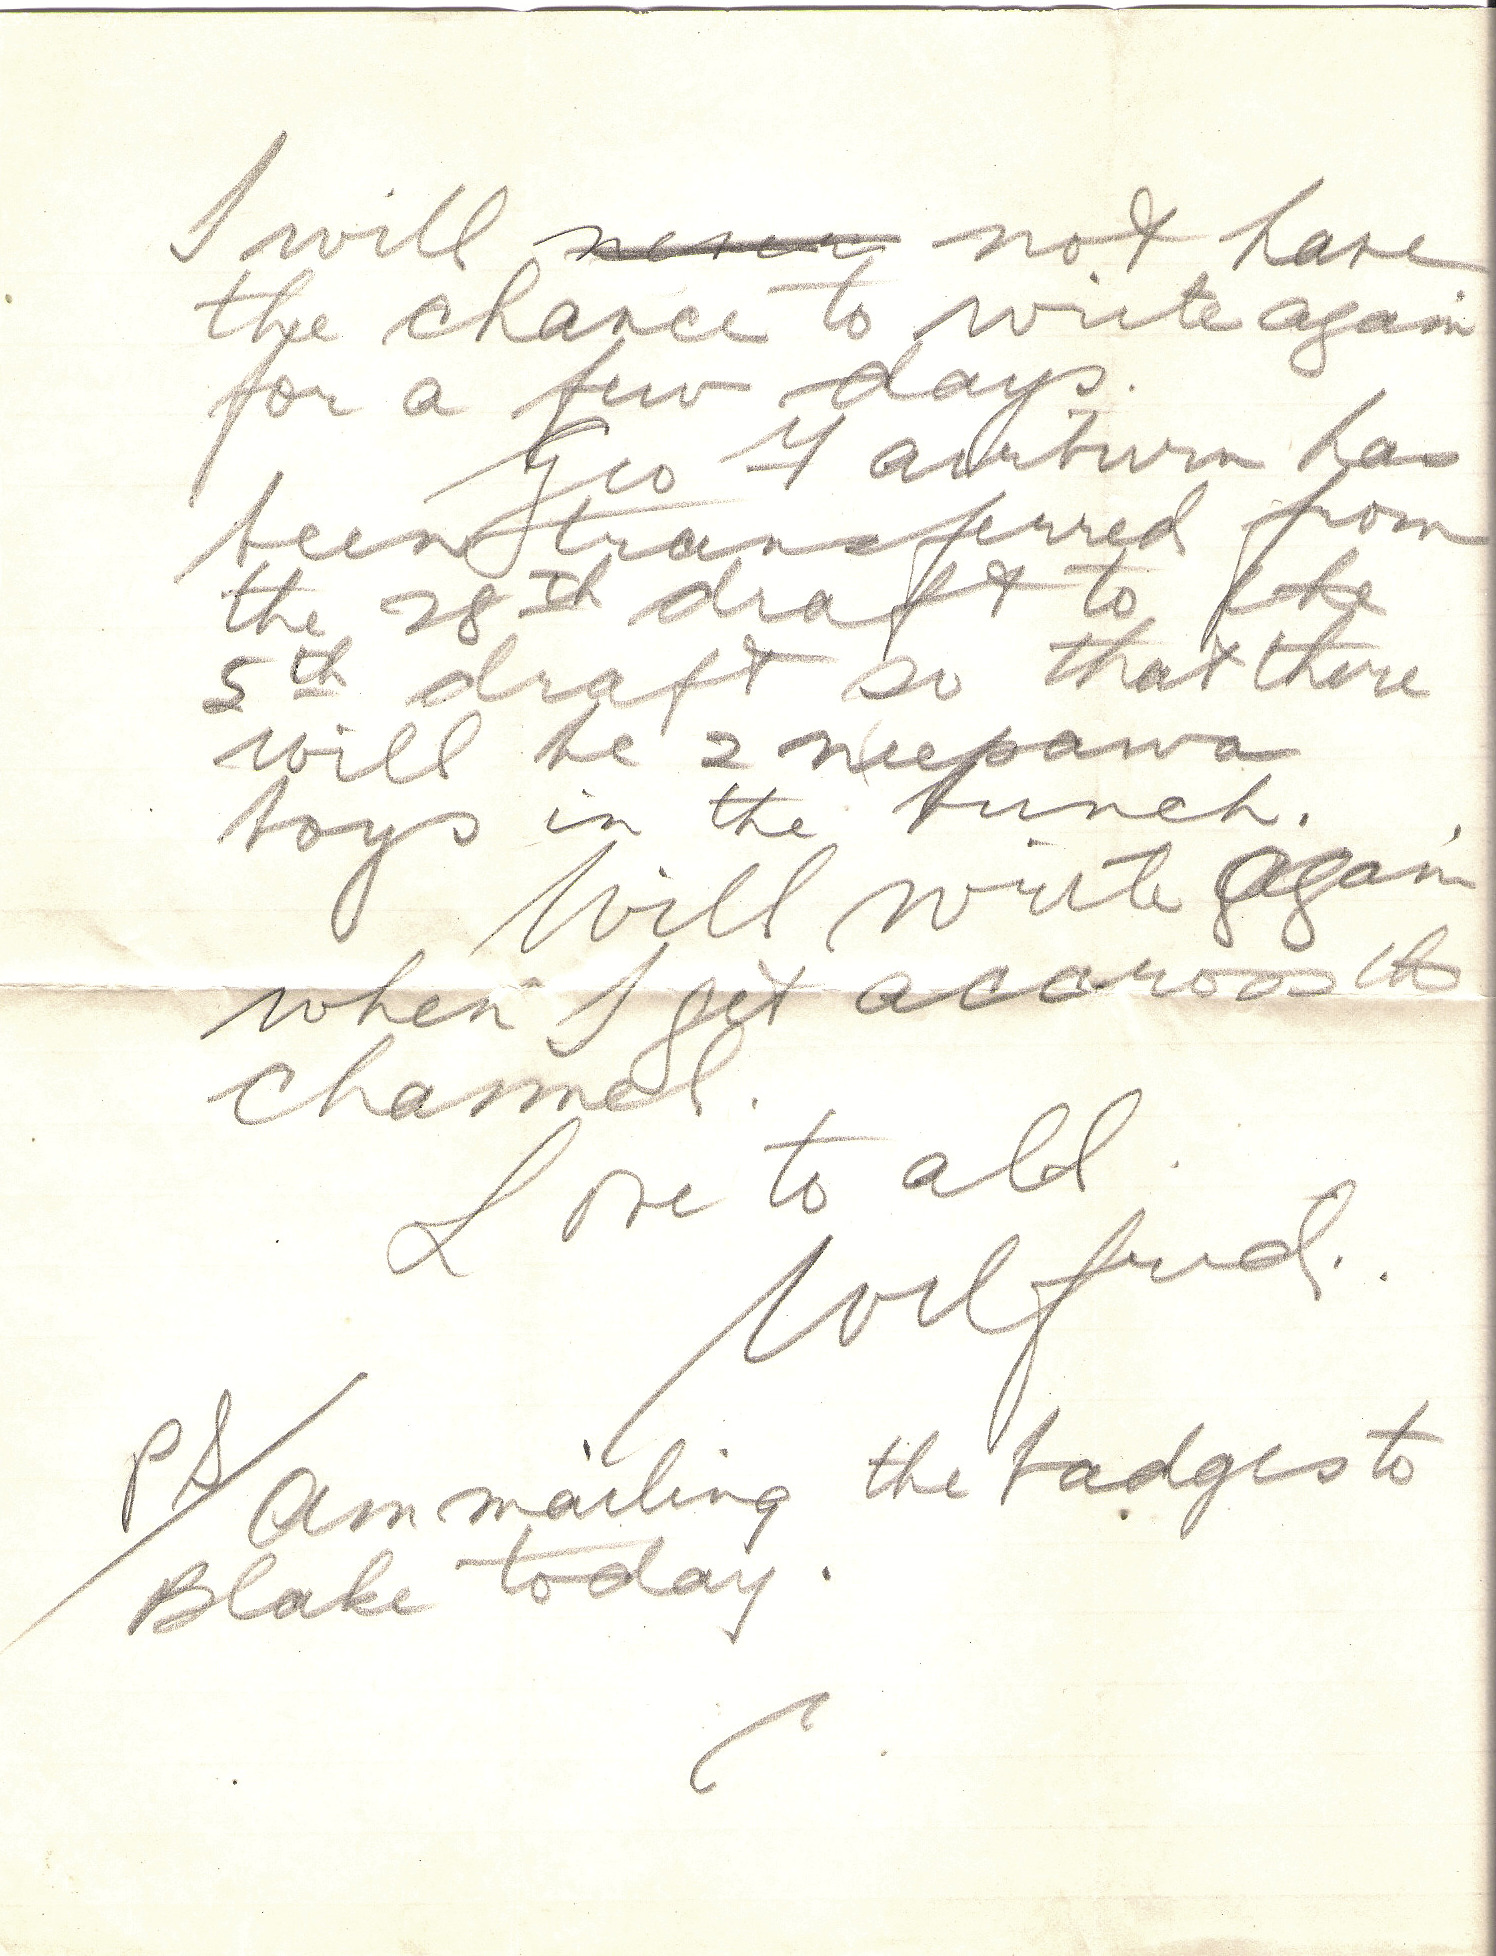 I will never not have
the chance to write again
for a few days.
Geo Fairburn has
been transferred from
the 28th draft to the
5th draft so that there
will be 2 neepawa
boys in the bunch.
Will write again
when I get accross the
channel.
Love to all.
Wilfred.
PS/ Am mailing the badges to
Blake today.